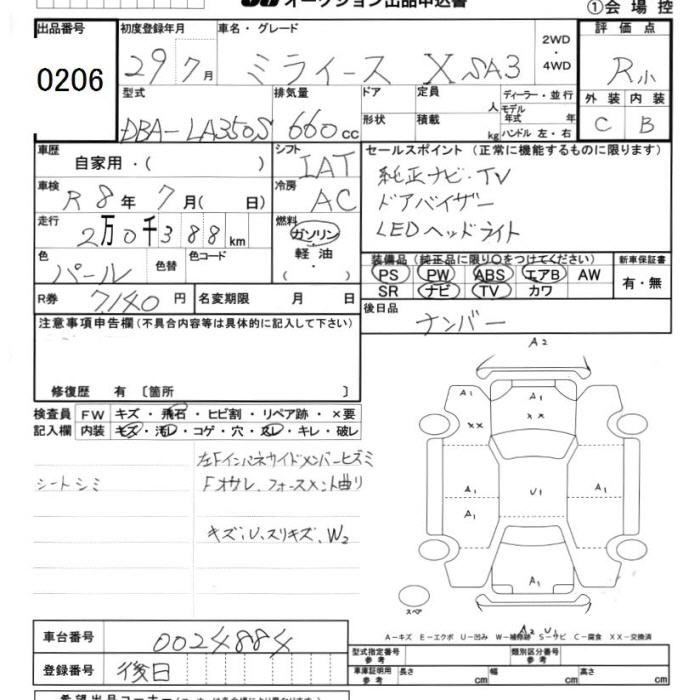 オークション出品申込書
①会場控
出品番号
0206
初度登録年月
29 7月
車名・グレード
ミライース X SA3
2WD
・
4WD
評価点
R小
外装 内装
C B
型式
DBA-LA350S
排気量
660cc
ドア
形状
定員
人
積載
kg
ディーラー・並行
モデル
年式 年
ハンドル 左・右
車歴
自家用・( )
シフト
IAT
車検
R8年 7月( 日)
冷房
AC
走行
2万0千388km
燃料
ガソリン
軽油
( ・ )
色
パール
色替
色コード
R券 7,140円
名変期限 月 日
セールスポイント (正常に機能するものに限ります)
純正ナビ・TV
ドアバイザー
LEDヘッドライト
装備品 (純正品に限り○をつけてください)
PS PW ABS エアB AW
SR ナビ TV カワ
新車保証書
有・無
後日品
ナンバー
注意事項申告欄(不具合内容等は具体的に記入して下さい)
修復歴 有 〔箇所 〕
検査員
記入欄
FW キズ・飛石・ヒビ割・リペア跡・×要
内装 キズ・汚レ・コゲ・穴・スレ・キレ・破レ
シートシミ
左Fインパネサイドメンバーヒズミ
Fオサレ、フォースメント曲り
キズ、U、スリキズ、W2
A2
A1
A1
XX
XX
A1
U1
A1
A1
A1
スペア
A2 U1
A-キズ E-エクボ U-凹み W-補修跡 S-サビ C-腐食 XX-交換済
車台番号 0024884
登録番号 後日
型式指定番号
参考
類別区分番号
参考
車庫証明用
参考
長さ cm
幅 cm
高さ cm
希望出品コーナー